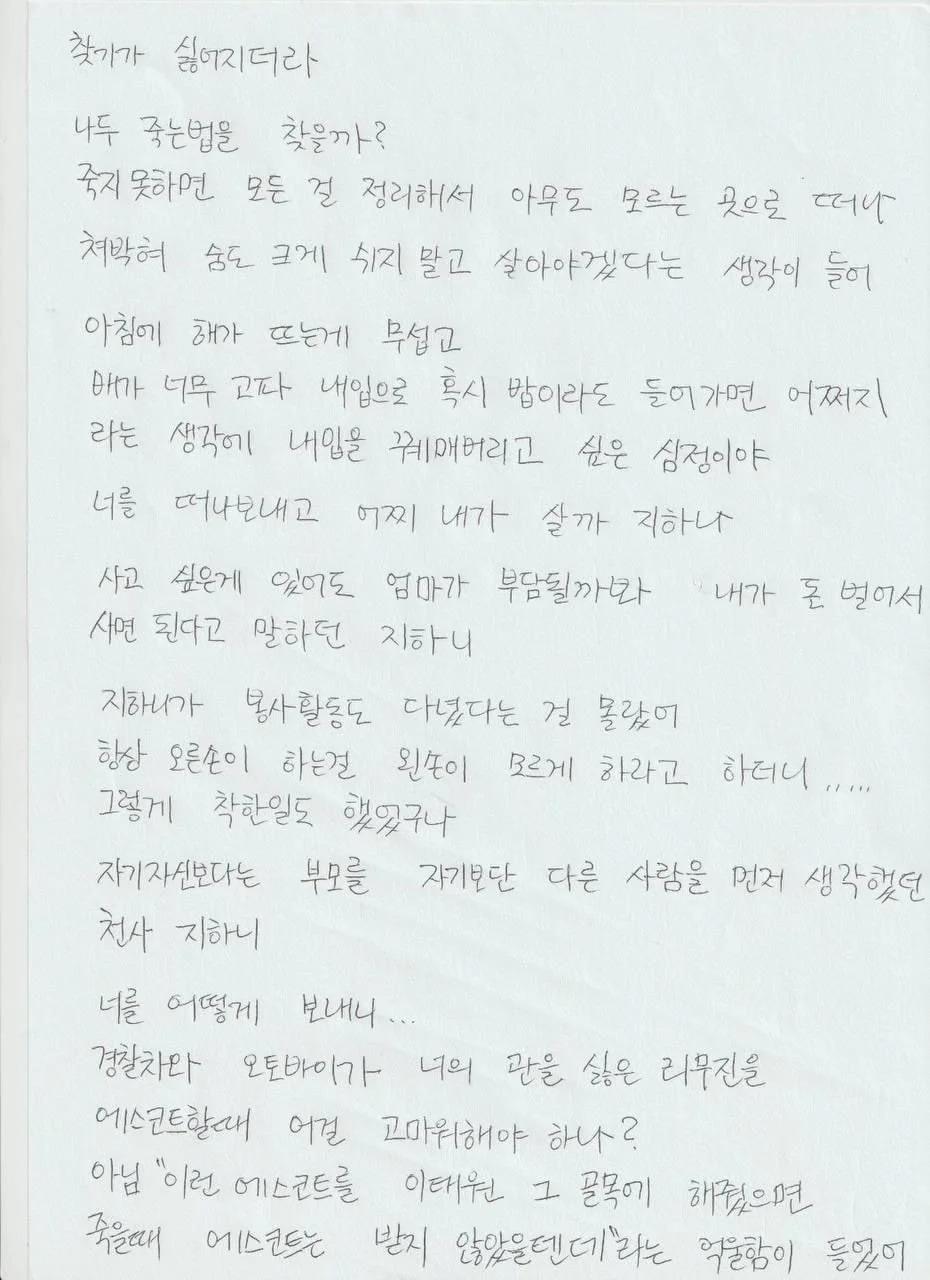 찾기가 싫어지더라
나두 죽는법을 찾을까?
죽지못하면 모든 걸 정리해서 아무도 모르는 곳으로 떠나
쳐박혀 숨도 크게 쉬지 말고 살아야겠다는 생각이 들어
아침에 해가 뜨는게 무섭고
배가 너무 고파 내입으로 혹시 밥이라도 들어가면 어쩌지
라는 생각에 내입을 꿰매버리고 싶은 심정이야
너를 떠나보내고 어찌 내가 살까 지하나
사고 싶은게 있어도 엄마가 부담될까봐 내가 돈 벌어서
사면 된다고 말하던 지하니
지하니가 봉사활동도 다녔다는 걸 몰랐어
항상 오른손이 하는걸 왼손이 모르게 하라고 하더니.....
그렇게 착한일도 했었구나
자기자신보다는 부모를 자기보단 다른 사람을 먼저 생각했던
천사 지하니
너를 어떻게 보내니...
경찰차와 오토바이가 너의 관을 실은 리무진을
에스코트할때 어걸 고마워해야 하나?
아님 "이런 에스코트를 이태원 그 골목에 해줬으면
죽을때 에스코트는 받지 않았을텐데"라는 억울함이 들었어